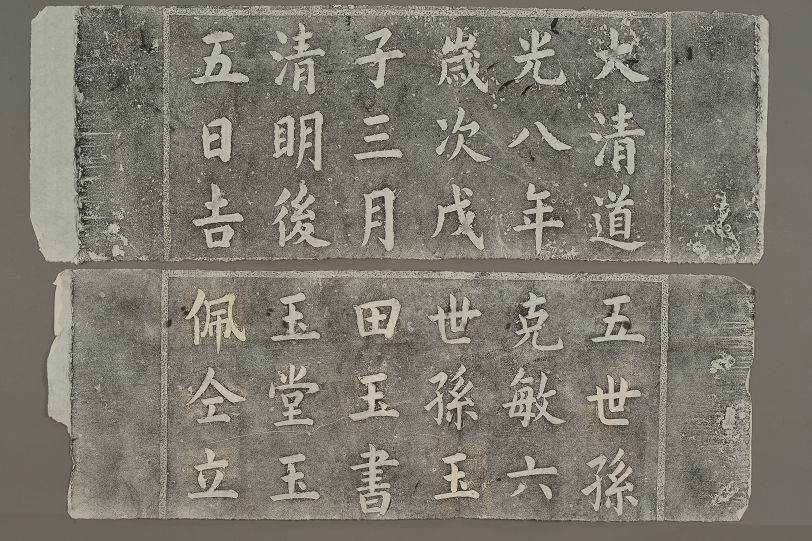 大清道
光八年
歳次戊
子三月
清明後
五日吉
五世孫
克敏六
世孫玉
田玉書
玉堂玉
佩仝立